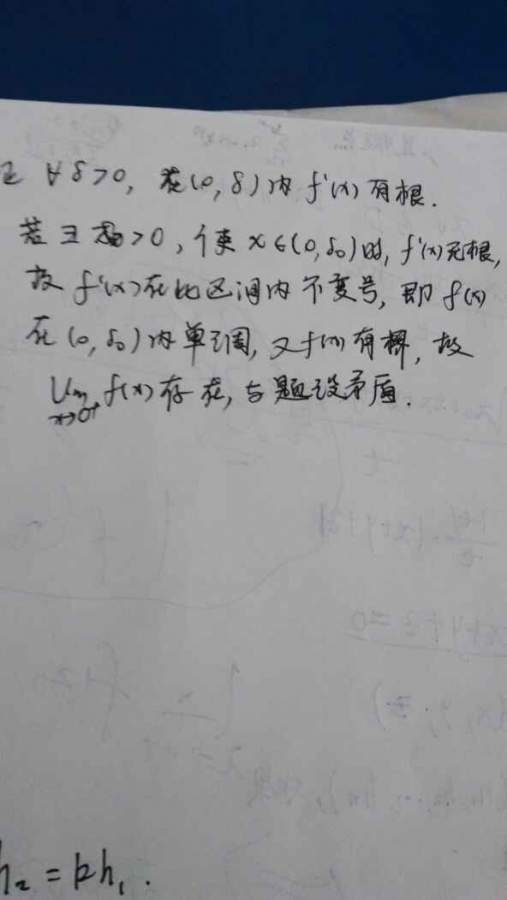 ∀δ>0, 在(0,δ)内 f'(x)有根.
若∃δ₀>0, 使 x∈(0,δ₀)时, f'(x)无根,
故 f'(x)在此区间内不变号, 即 f(x)
在(0,δ₀)内单调, 又f(x)有界, 故
lim x→0⁺ f(x)存在, 与题设矛盾.
h₂=kh₁.